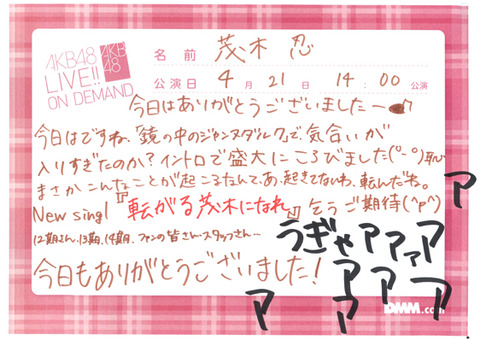 AKB48
LIVE!!
ON DEMAND
AKB
48
名前 茂木 忍
公演日 4月21日 14:00 公演
今日はありがとうございましたー
今日はですね、「鏡の中のジャンヌダルク」で、気合いが
入りすぎたのか?イントロで盛大にころびました(°-°)
まさかこんなことが起こるなんて、あ、起きてないわ、転んだね。
New singl 『転がる茂木になれ』乞うご期待(^P^)
12期さん、13期、14期、ファンの皆さん、スタッフさん…
今日もありがとうございました!
うぎゃアアァア
ア
ア
ア
ア
ア
ア
DMM.com